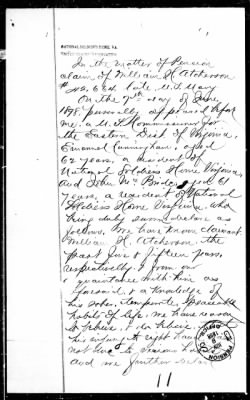 NATIONAL SOLDIERS HOME, VA.
In the matter of Pension
claim of William H. Atcherson
late, U.S. Navy
On the 7th day of June,
1898, personally appeared before
me, a U.S. Commissioner for
the Eastern Dist. of Virginia,
Emanuel Cunningham, aged
62 years, a resident of
National Soldiers Home Virginia,
and John Mc aged 61
years, a resident of National
Soldiers Home Virginia who
being duly sworn declare as
follows. We have known claimant
William H. Atcherson the
past five & fifteen years,
respectively, & from our
acquaintance with him as
foresaid & a knowledge of
his sober, temperate, peaceable
habits of life, we have reason
to believe, & do believe,
his injury to right hand
not due to vicious habits
And we further
11